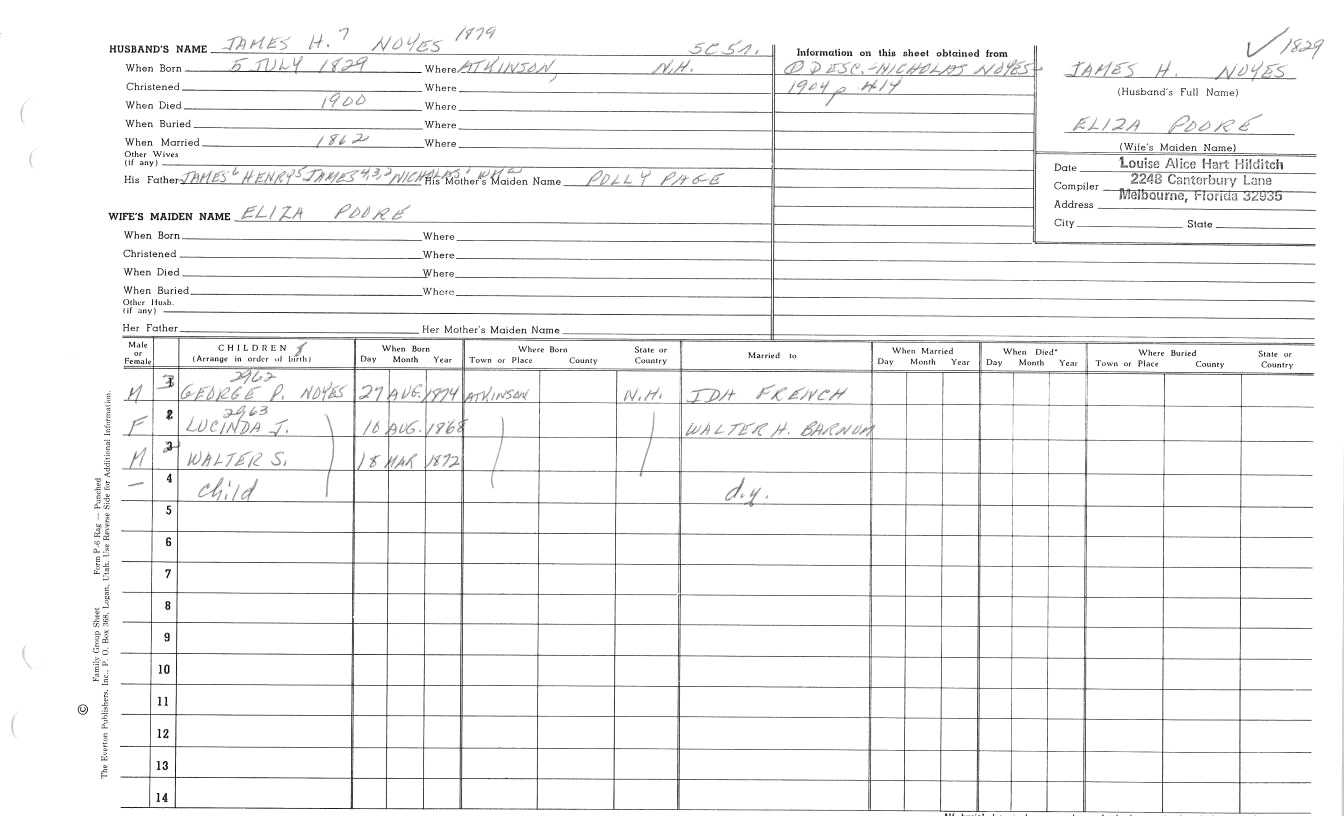 HUSBAND'S NAME JAMES H. 7 NOYES 1879
When Born 5 JULY 1829 Where ATKINSON, N.H.
Christened Where
When Died 1900 Where
When Buried Where
When Married 1862 Where
Other Wives
(if any)
His Father JAMES 6 HENRY 5 JAMES 4,3,2 NICHOLAS 1 WM His Mother's Maiden Name POLLY PAGE
WIFE'S MAIDEN NAME ELIZA POORE
When Born Where
Christened Where
When Died Where
When Buried Where
Other Husb.
(if any)
Her Father Her Mother's Maiden Name
Information on this sheet obtained from
DESC.-NICHOLAS NOYES
1904 p 414
✓ 1829
JAMES H. NOYES
(Husband's Full Name)
ELIZA POORE
(Wife's Maiden Name)
Date Louise Alice Hart Hilditch
Compiler 2248 Canterbury Lane
Address Melbourne, Florida 32935
City State
Male or Female
CHILDREN
(Arrange in order of birth)
When Born
Day Month Year
Where Born
Town or Place County
State or Country
Married to
When Married
Day Month Year
When Died*
Day Month Year
Where Buried
Town or Place County
State or Country
2962
M 1 GEORGE P. NOYES 27 AUG. 1874 ATKINSON N.H. IDA FRENCH
2963
F 2 LUCINDA J. 10 AUG. 1868 WALTER H. BARNUM
M 3 WALTER S. 18 MAR 1872
— 4 child d.y.
5
6
7
8
9
10
11
12
13
14
© Family Group Sheet Form P-6 Rag — Punched
The Everton Publishers, Inc., P. O. Box 368, Logan, Utah. Use Reverse Side for Additional Information.